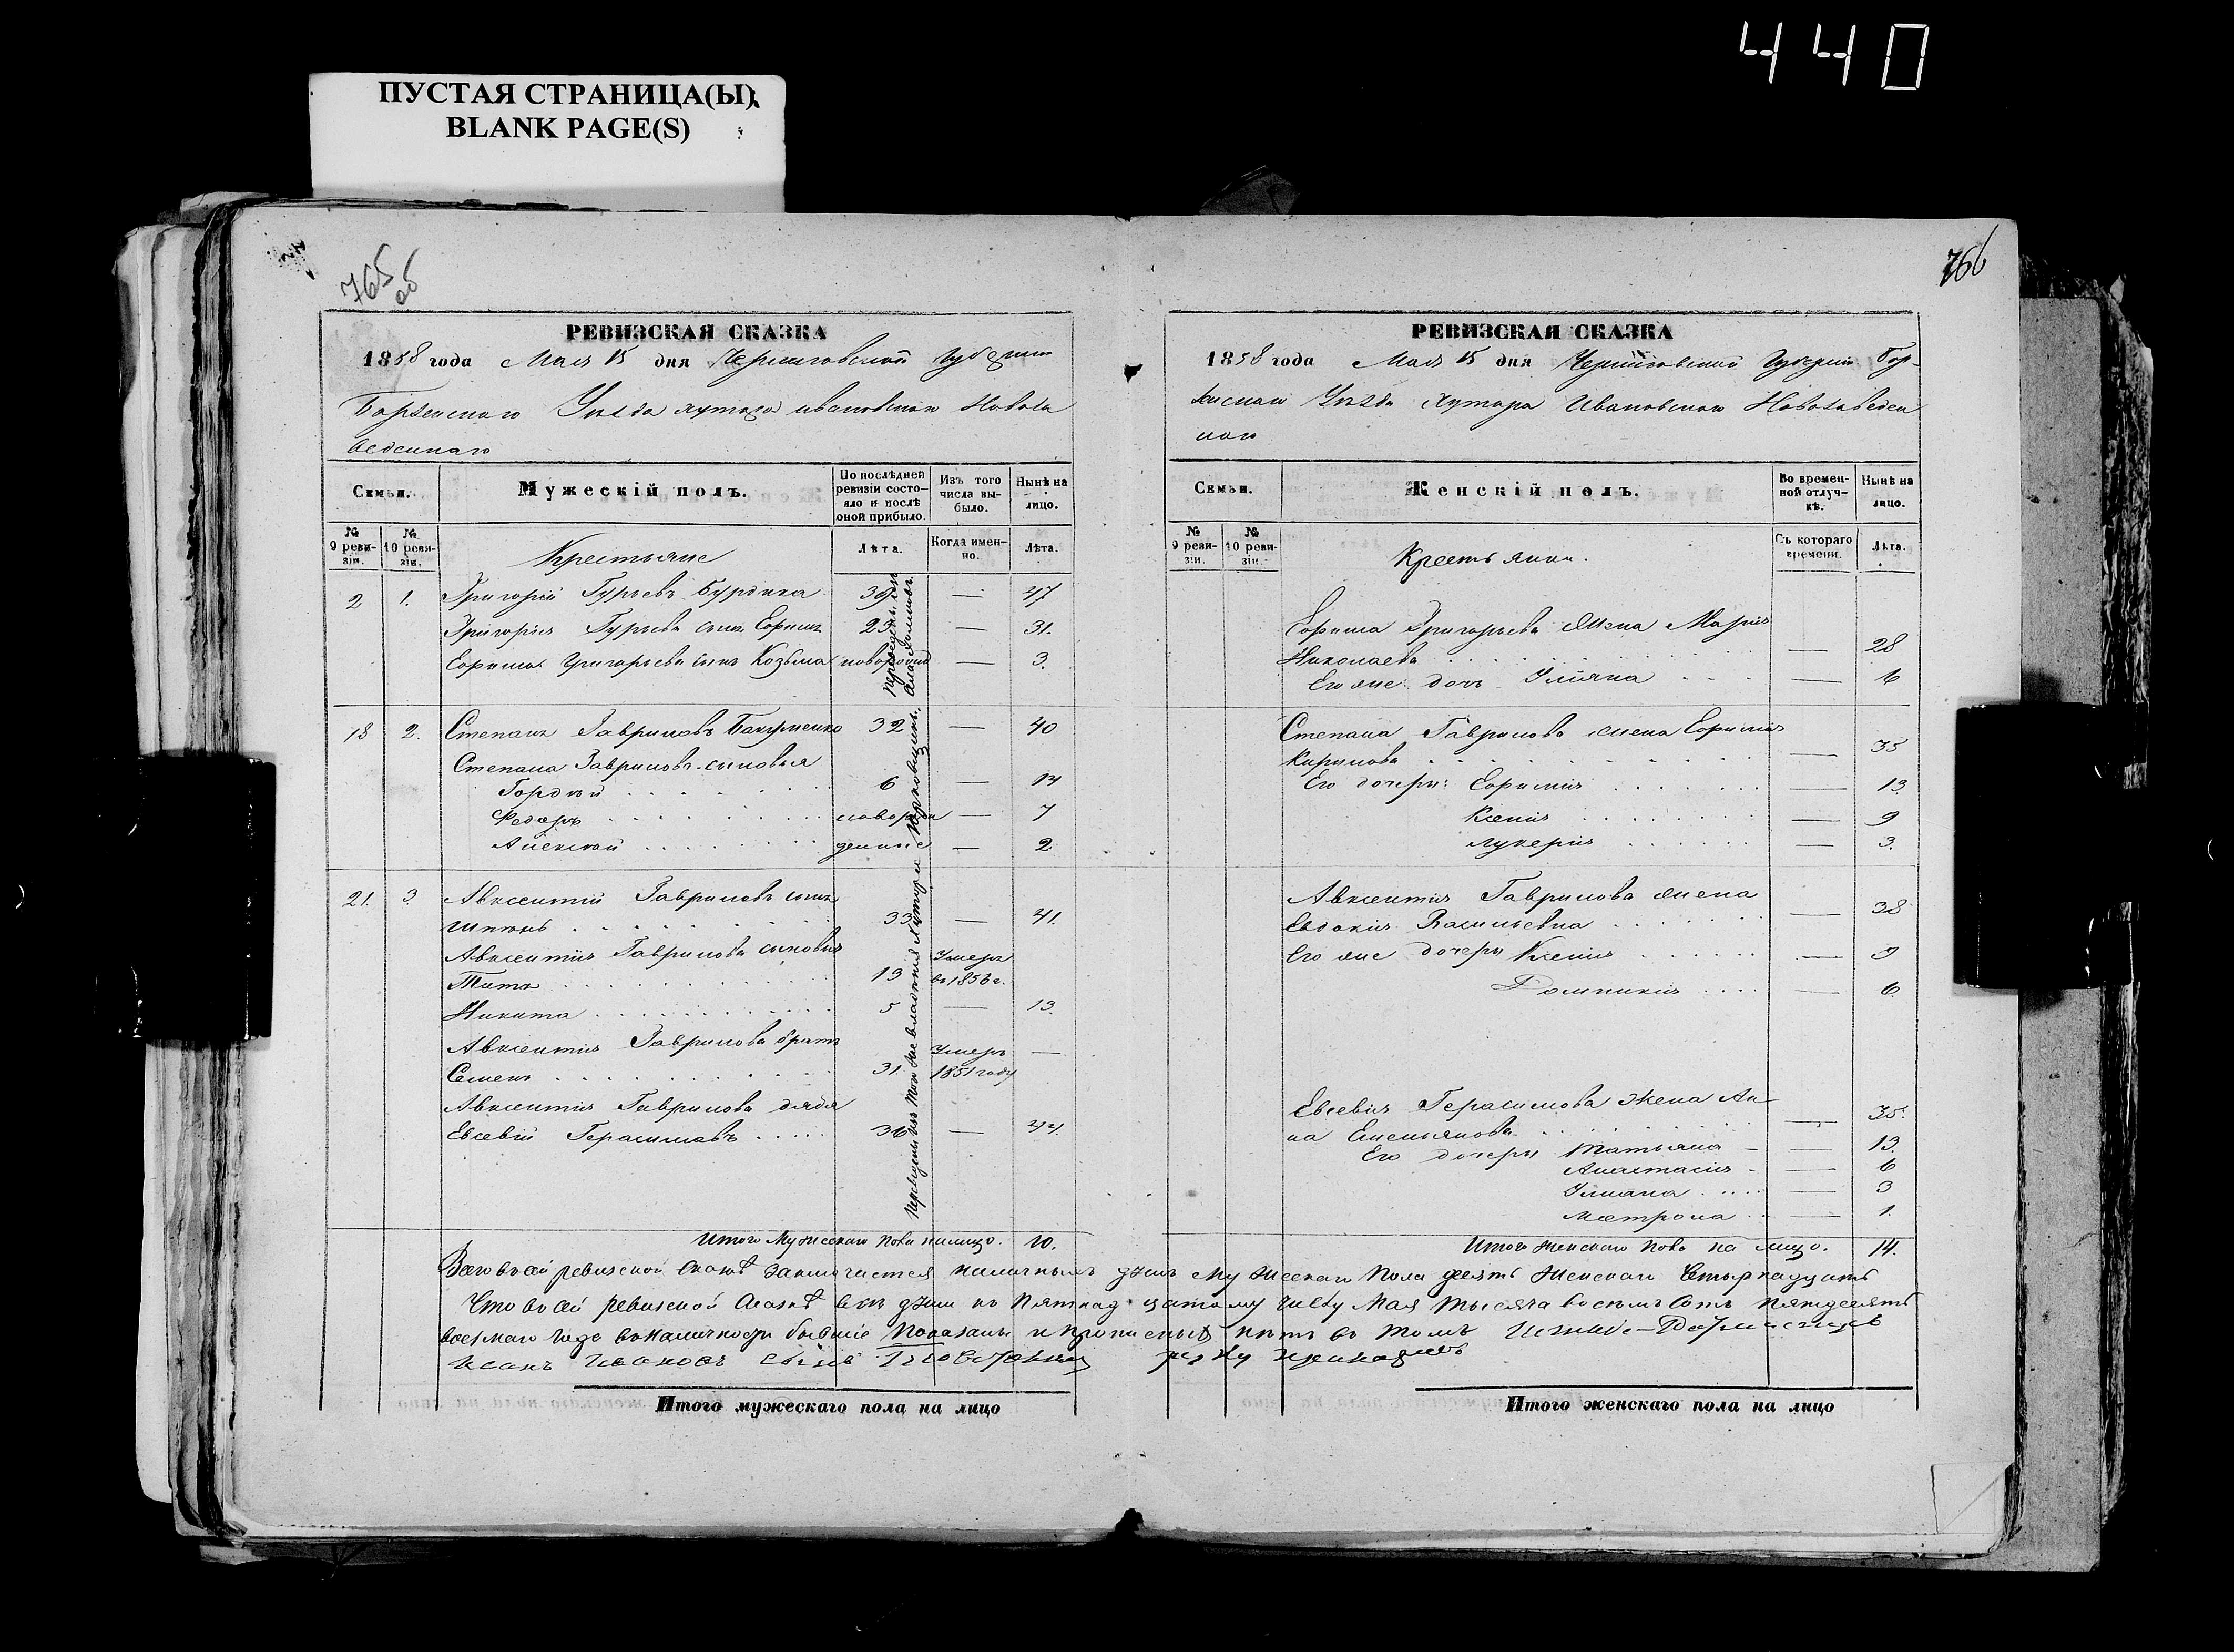 440
ПУСТАЯ СТРАНИЦА(Ы)
BLANK PAGE(S)
765 об
766
РЕВИЗСКАЯ СКАЗКА
1858 года Мая 15 дня Черниговской Губернии
Борзенскаго Уѣзда хутора Ивановскаго Новоза
веденнаго
Семьи. Мужескій полъ. По послѣдней ревизіи состояло и послѣ оной прибыло. Изъ того числа выбыло. Нынѣ на лицо.
№ 9 ревизіи. № 10 ревизіи. Крестьяне Лѣта. Когда именно. Лѣта.
2 1. Григорій Гурьевъ Бурдыка 39 — 47
Григорія Гурьева сынъ Ефимъ 23 — 31.
Ефима Григорьева сынъ Козьма новорожд — 3.
18 2. Степанъ Гавриловъ Бакуменко 32 — 40
Степана Гаврилова сыновья
Гордѣй 6 — 14
Федоръ новорож — 7
Алексѣй денные — 2
21. 3. Авксентій Гавриловъ сынъ
33 — 41.
Авксентія Гаврилова сыновья
Титъ 13 Умеръ въ 1856 г.
Никита 5 — 13.
Авксентія Гаврилова братъ
Семенъ 31. Умеръ 1851 году —
Авксентія Гаврилова дядя
Евсевій Герасимовъ 36 — 44.
Итого Мужескаго пола налицо. 10.
Итого мужескаго пола на лицо
РЕВИЗСКАЯ СКАЗКА
1858 года Мая 15 дня Черниговской Губерніи Бор-
зенскаго Уѣзда хутора Ивановскаго Новозаведен
наго
Семьи. Женскій полъ. Во временной отлучкѣ. Нынѣ на лицо.
№ 9 ревизіи. № 10 ревизіи. Крестьянки. Съ котораго времени. Лѣта.
Ефима Григорьева жена Марія
Николаева — 28
Его же дочь Уліяна — 6
Степана Гаврилова жена Ефимія
Кирилова — 35
Его дочери: Ефимія — 13
Ксенія — 9
Лукерія — 3.
Авксентія Гаврилова жена
Евдокія Васильевна — 38
Его же дочери Ксенія — 9
Домникія — 6
Евсевія Герасимова жена Ан-
на Емельянова — 35.
Его дочери Татьяна — 13.
Анастасія — 6
Уліана — 3
Матрона — 1.
Итого женскаго пола на лицо. 14.
Всего въ сей ревизской сказкѣ заключается наличныхъ душъ мужескаго пола десять женскаго четырнадцать
Что въ сей ревизской сказкѣ всѣ души къ пятнадцатому числу Мая тысяча восемьсотъ пятьдесятъ
восьмаго года въ наличности бывшіе показаны и прописныхъ нѣтъ въ томъ
Итого женскаго пола на лицо